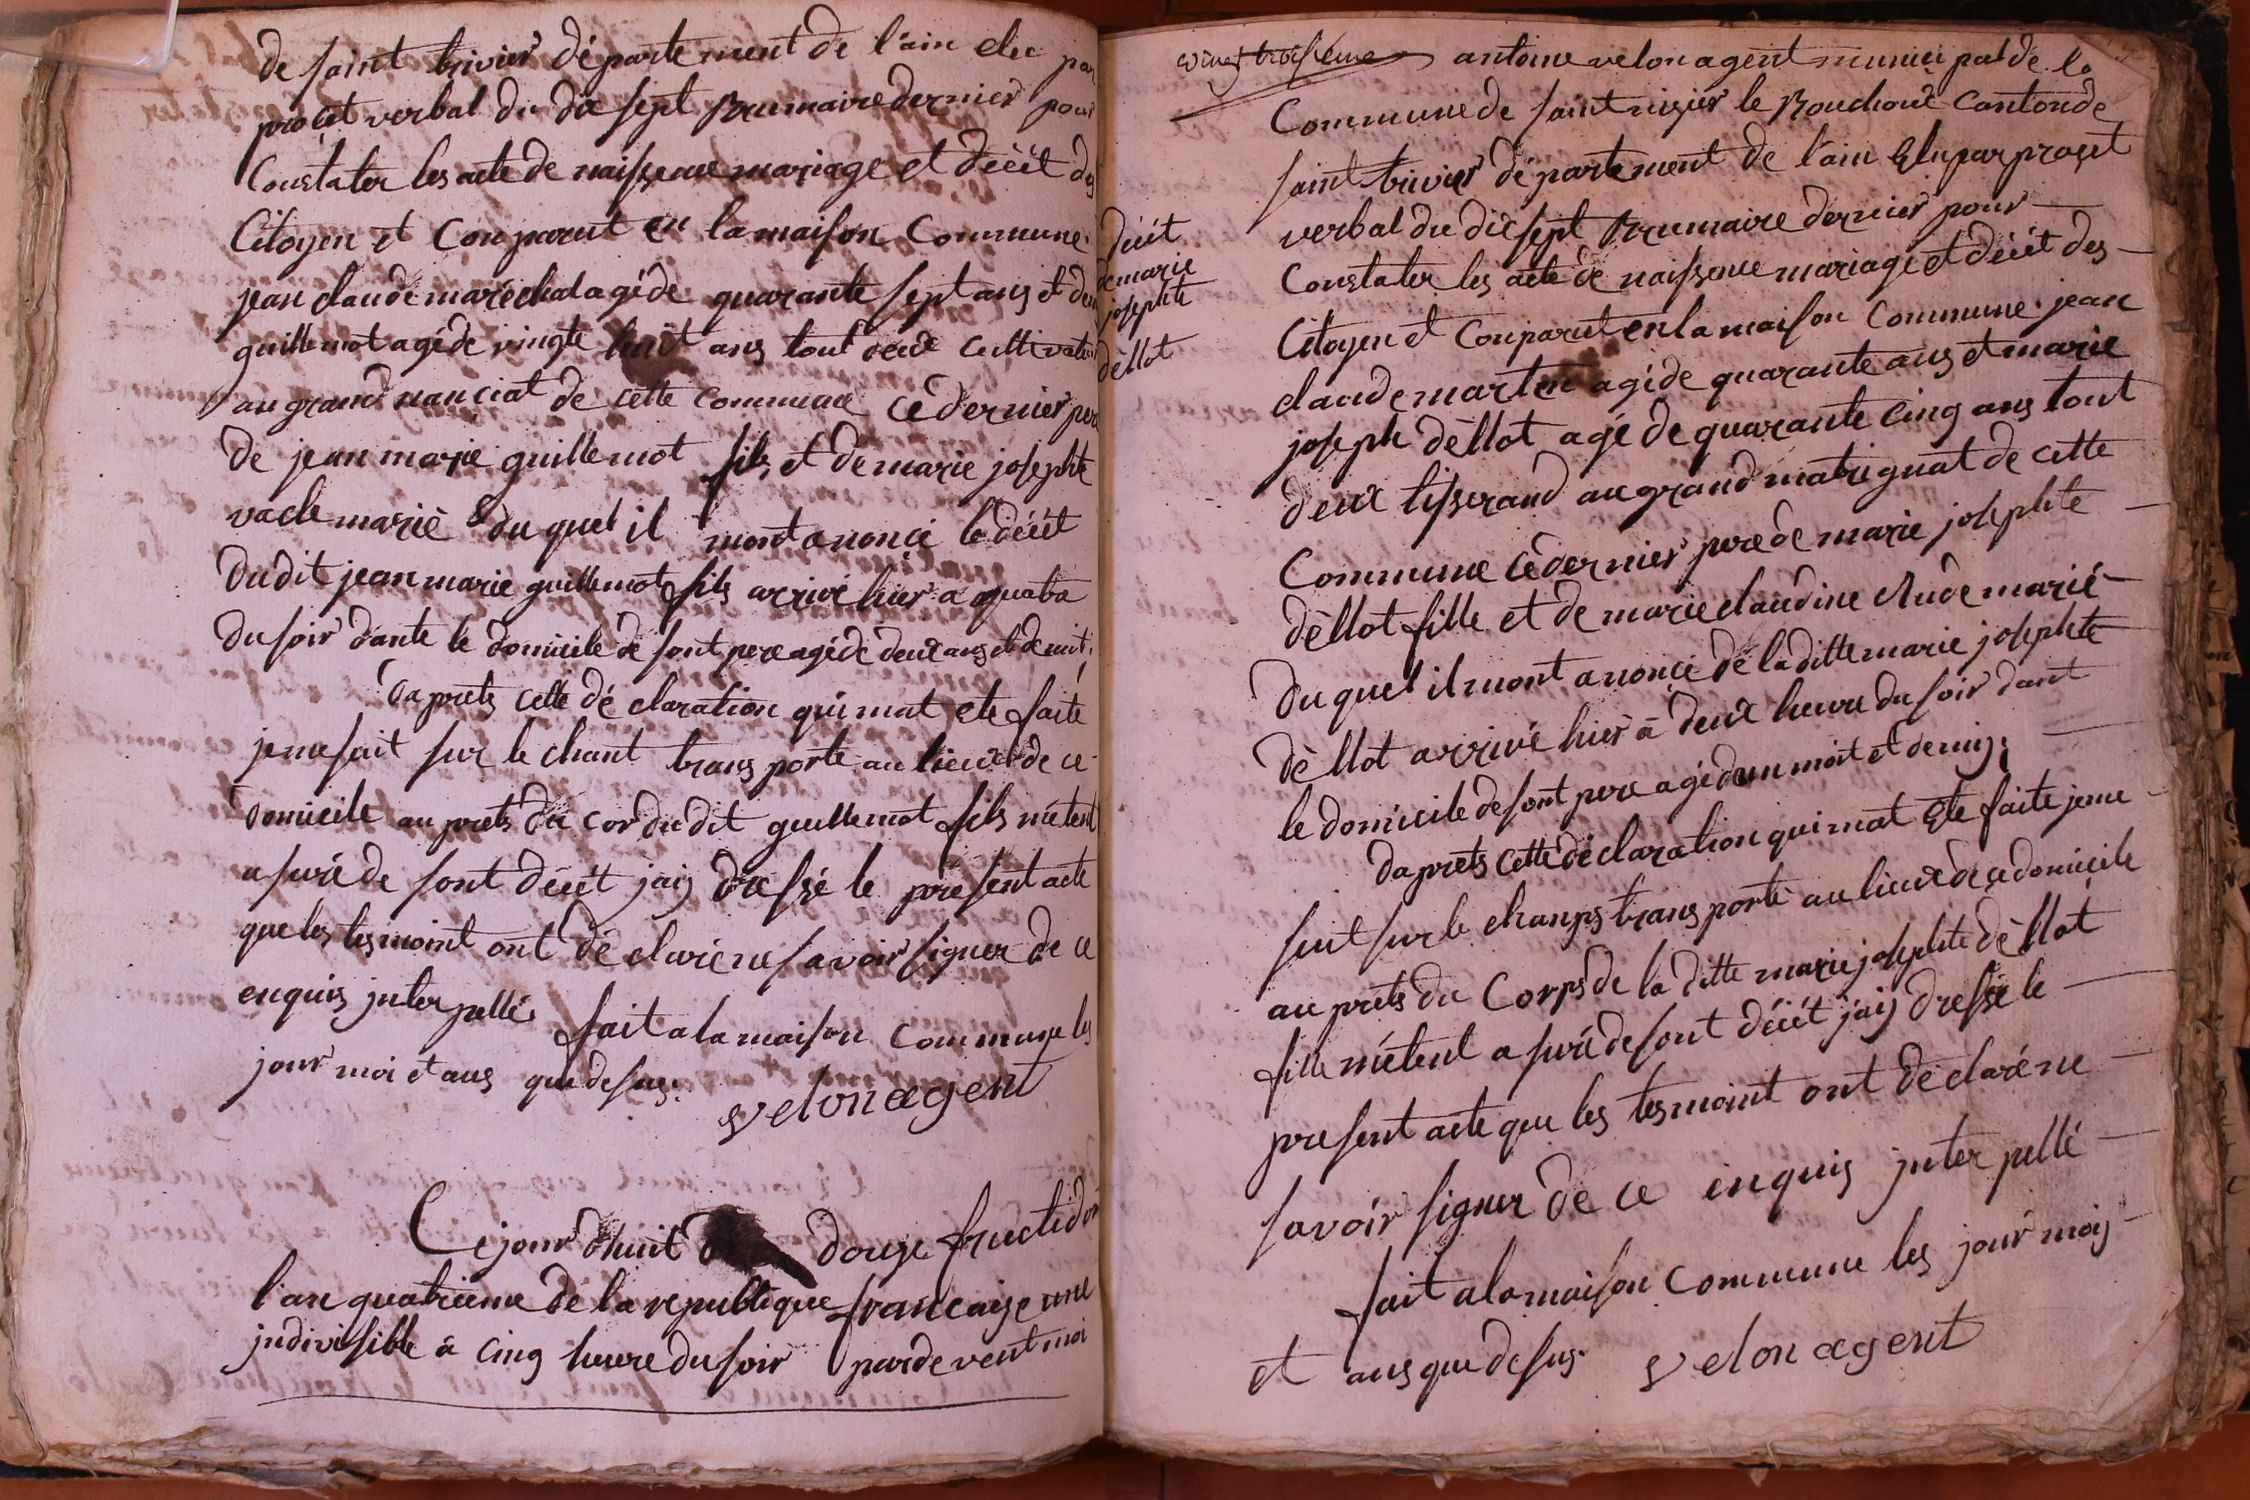 de saint trivier département de l'ain elu par
procet verbal du dix sept Brumaire dernier pour
Constater les acte de naissence mariage et décét des
Citoyen et Comparut en la maison Commune.
jean claude maréchal agé de quarante sept ans et
guillemot agé de vingte huit ans tout deux cultivateur
au grand nanciat de cette commune cédernier pere
de jean marie guillemot fils et de marie josephte
vacle marié du quel il mont anoncé le décét
du dit jean marie guillemot fils arrivé hier a
du soir dante le domicile de sont pere agé de deux ans et demit.
daprets cette dé claration qui mat ete faite
je me sait sur le chant trans porté au lieux de ce
domicile au prets du cor du dit guillemot fils métent
asuré de sont décét jaij dressé le présent acte
que les tesmoint ont dé claré ne savoir signer de ce
enquis jnter pellé. fait a la maison commune les
jour moi et ans que desus:
velon agent
Ce jour dhuit douze fructidor
l'an quatrieme de la republique française une
jndivisible à cinq heure du soir par devent moi
vingt troisieme antoine velon agent munici pal de la
Commune de saint nizier le Bouchoux canton de
saint trivier dé partement de l'ain Elu par proçet
verbal du dix sept Brumaire dernier pour
Constater les acte de naissence mariage et décét des
décét
de marie
josephte
dèllot
Citoyen et Comparut en la maison Commune. jean
claude martin agé de quarante ans et marie
joseph dèllot agé de quarante cinq ans tout
deux tisserand au grand matrignat de cette
Commune cédernier pere de marie josephte
dèllot fille et de marie claudine marié
du quel il mont anoncé de la ditte marie josephte
dèllot arrivé hier à deux heure du soir dant
le domicile de sont pere agé dun moit et demij.
daprets cette déclaration qui mat Ete faite je me
suit sur le champs trans porté au lieux de ce domicile
au prets du Corps de la ditte marie josephte dèllot
fille métent asuré de sont décét jaij dressé le
present acte que les tesmoint ont dé claré ne
savoir signer de ce enquis jnter pellé
fait a la maison commune les jour mois
et ans que desus. velon agent